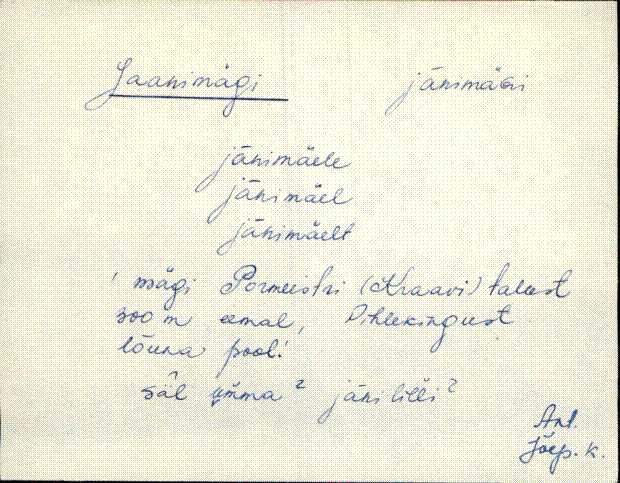 Jaanimägi jānimäGi
jānimäele
jānimäel
jānimäelt
' mägi Pormeistri (Kraavi) talust
300 m eemal, Pihlekingust
lõuna pool.'
säl umma² jānililli²
Ant.
Jõep. k.